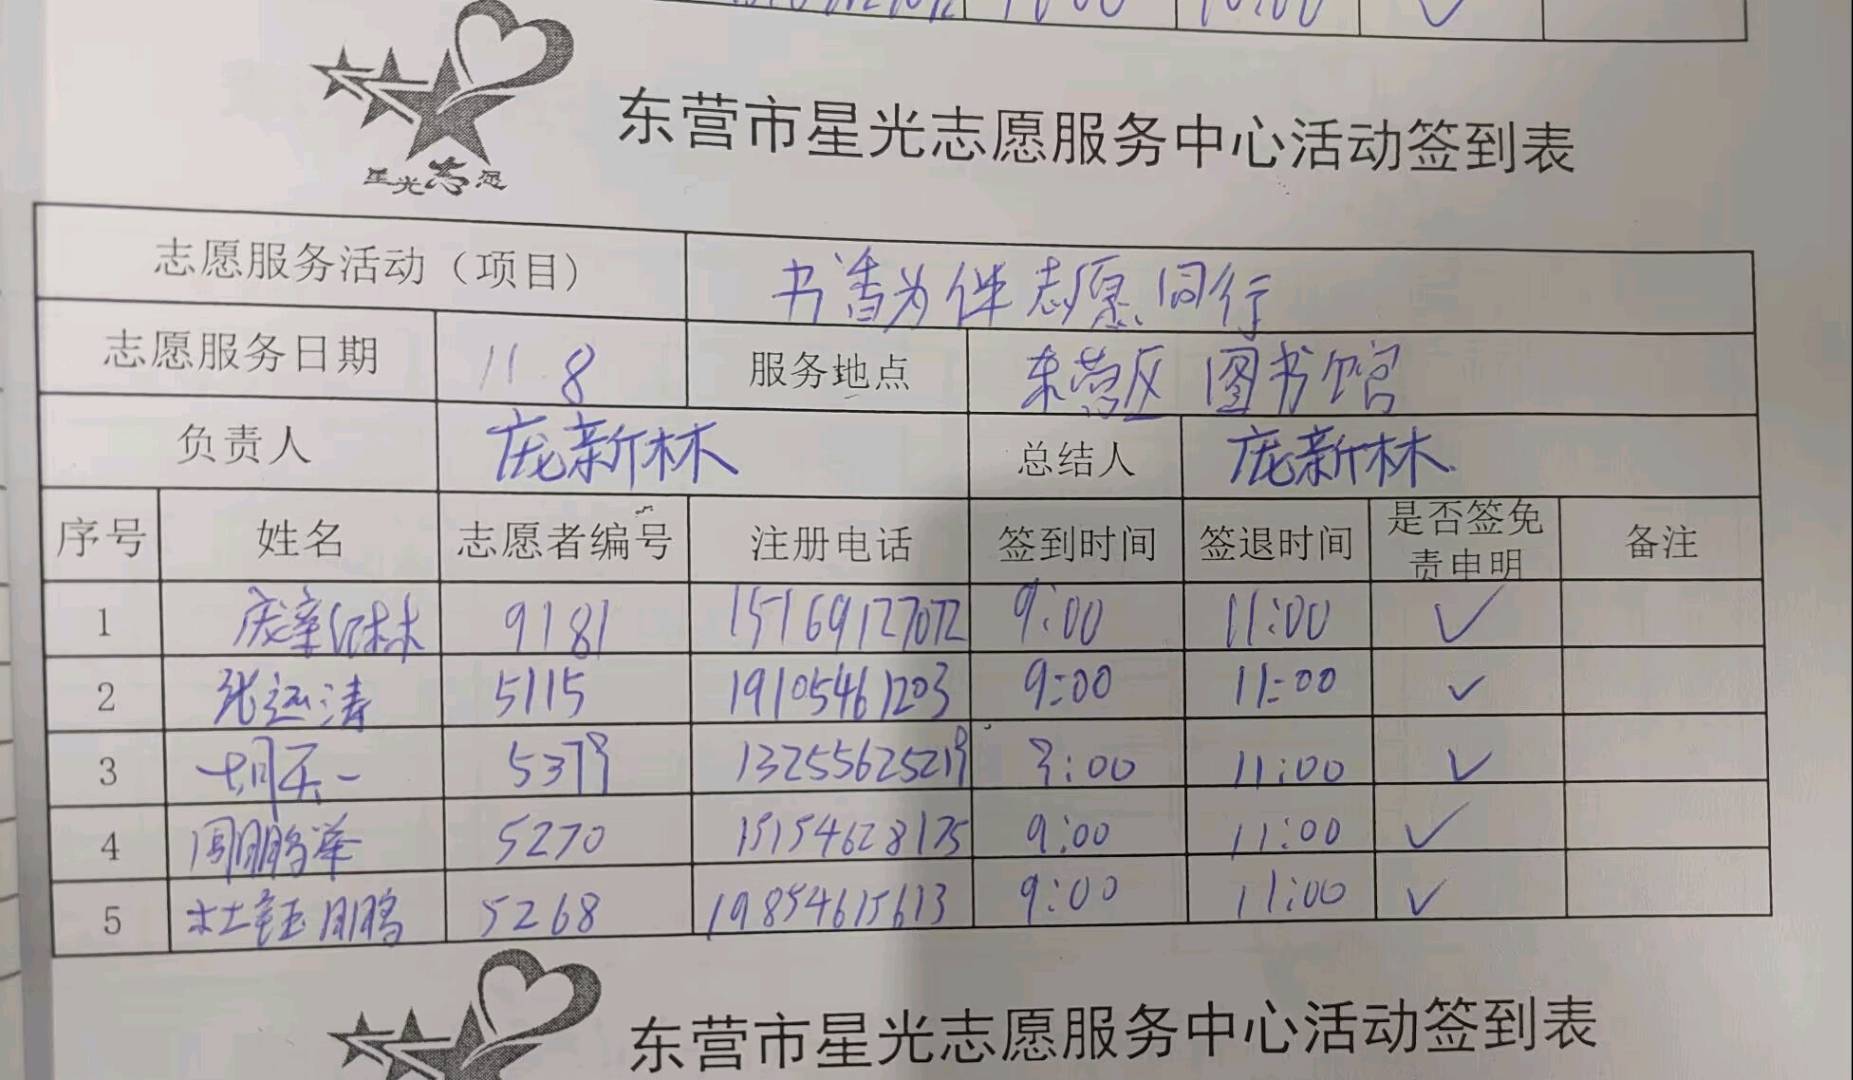 星光志愿
东营市星光志愿服务中心活动签到表
志愿服务活动（项目） 书香为伴志愿同行
志愿服务日期 11.8 服务地点 东营区图书馆
负责人 庞新林 总结人 庞新林
序号 姓名 志愿者编号 注册电话 签到时间 签退时间 是否签免责申明 备注
1 庞新林 9181 15169127072 9:00 11:00 ✓
2 张远清 5115 19105461203 9:00 11:00 ✓
3 胡天一 5379 13255625219 9:00 11:00 ✓
4 周鹏举 5270 15154628175 9:00 11:00 ✓
5 杜钰鹏 5268 19854615613 9:00 11:00 ✓
东营市星光志愿服务中心活动签到表